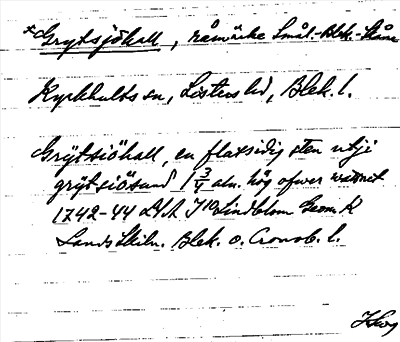 *Grytsjöhall, råmärke Smål.-Blek.-Skåne
Kyrkhults sn, Listers hd, Blek. l.
Grÿtsiöhall, en flatsidig sten utji
grÿtsiösund 1 3/4 aln. hög ofwer wattnet
1742-44 LSA J10 Lindblom Geom. K
LandsSkiln. Blek. o. Cronob. l.